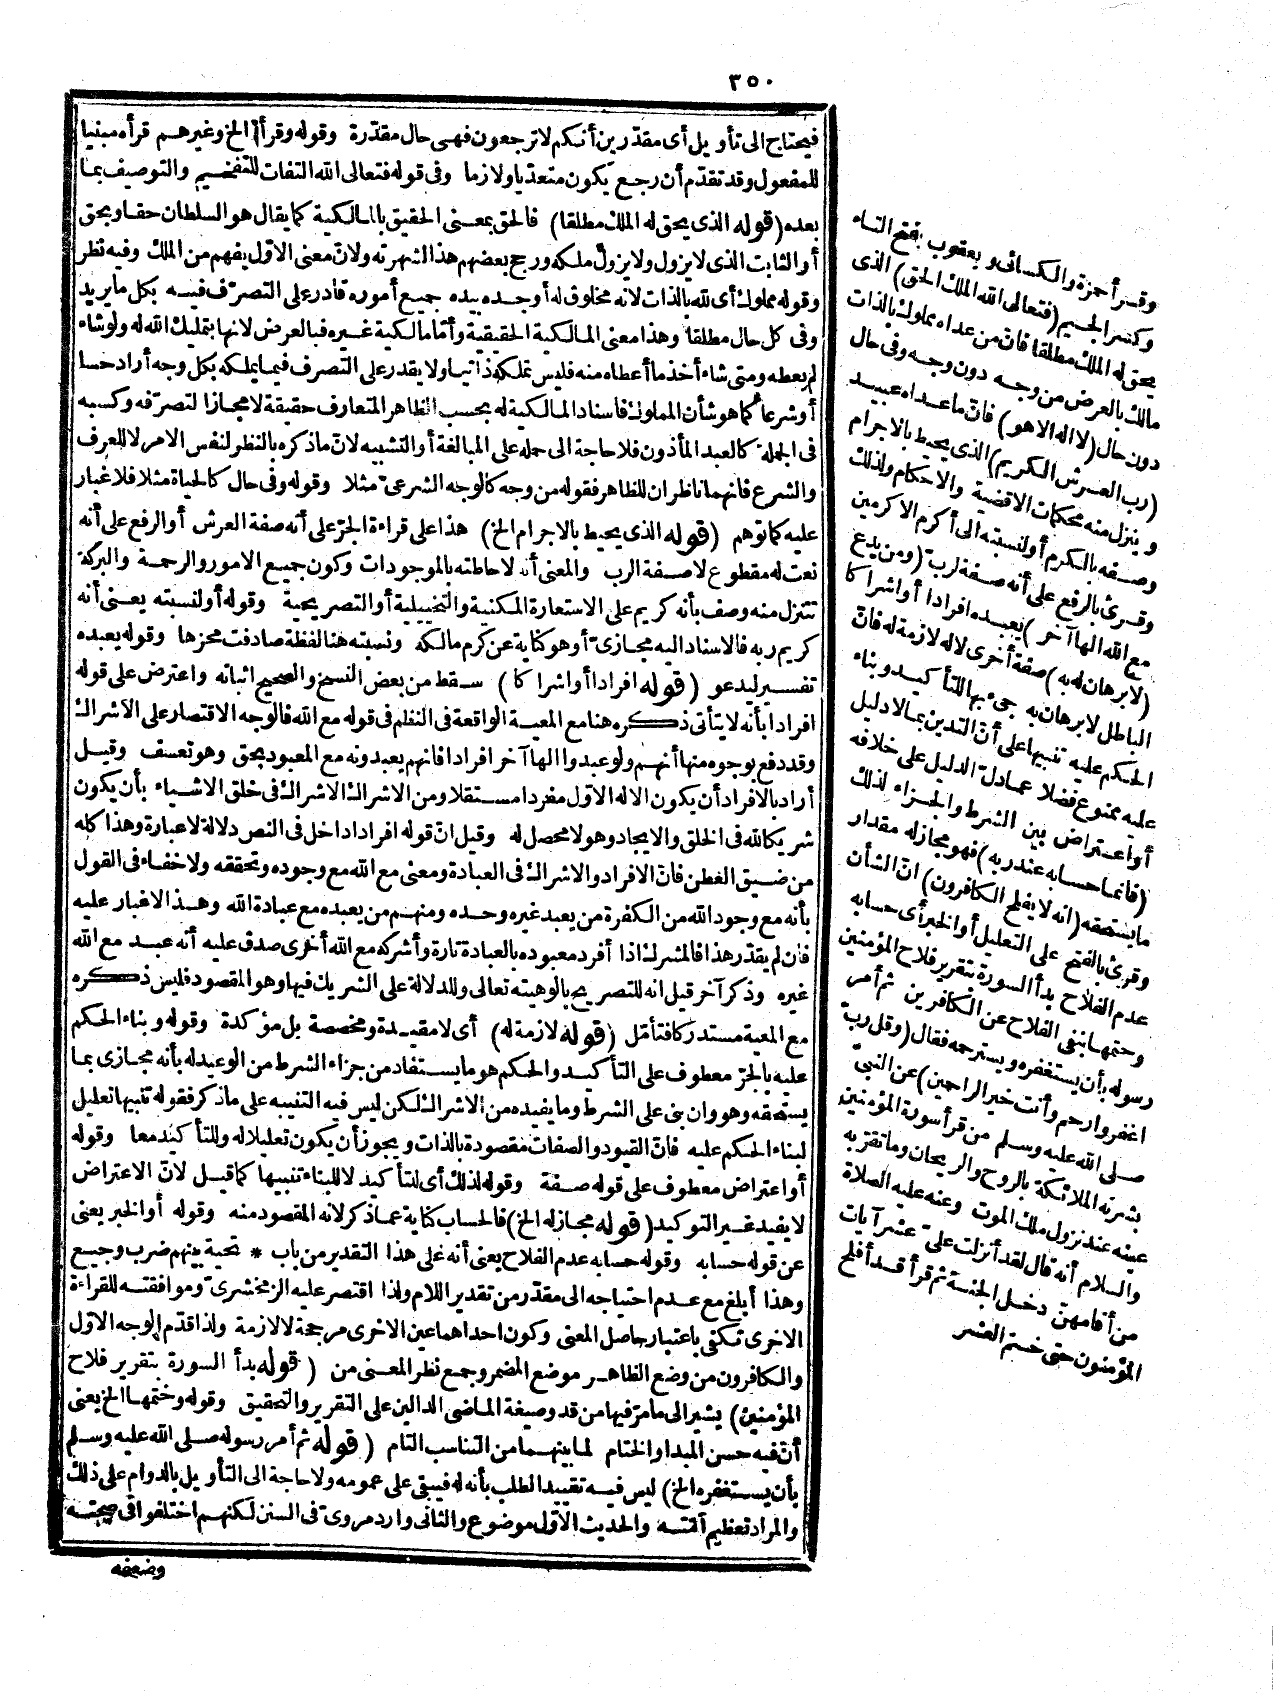 ٣٥٠
فيحتاج الى تأويل أى مقدّرين أنكم لا ترجعون فهى حال مقدّرة وقوله وقرأ الخ وغيرهم قرأه مبنيا
للمفعول وقد تقدّم أن رجع يكون متعدّيا ولازما وفى قوله فتعالى الله التفات للتفخيم والتوصيف بما
بعده (قوله الذى يحق له الملك مطلقا) فالحق بمعنى الحقيق بالمالكية كما يقال هو السلطان حقا وبحق
أو الثابت الذى لا يزول ولا يزول ملكه ورجح بعضهم هذا لشهرته ولانّ معنى الاوّل يفهم من الملك وفيه نظر
وقوله مملوك أى لله بالذات لانه مخلوق له أوجده بيده جميع أموره قادر على التصرّف فيه بكل ما يريد
وفى كل حال مطلقا وهذا معنى المالكية الحقيقية وأمّا مالكية غيره فبالعرض لانها بتمليك الله له ولو شاء
لم يعطه ومتى شاء أخذ ما أعطاه منه فليس تملكه ذاتيا ولا يقدر على التصرف فيما يملكه بكل وجه أراد حسا
أو شرعا كما هو شأن المملوك فاسناد المالكية له بحسب الظاهر المتعارف حقيقة لا مجازا لتصرّفه وكسبه
فى الجملة كالعبد المأذون فلا حاجة الى حمله على المبالغة أو التشبيه لانّ ما ذكره بالنظر لنفس الامر لا للعرف
والشرع فانهما ناظران للظاهر فقوله من وجه كالوجه الشرعىّ مثلا وقوله وفى حال كالحياة مثلا فلا غبار
عليه كما توهم (قوله الذى يحيط بالاجرام الخ) هذا على قراءة الجرّ على أنه صفة العرش أو الرفع على أنه
نعت له مقطوع لا صفة الرب والمعنى أنه لاحاطته بالموجودات وكون جميع الامور والرحمة والبركة
تتنزل منه وصف بأنه كريم على الاستعارة المكنية والتخييلية أو التصريحية وقوله أو لنسبته يعنى أنه
كريم ربه فالاسناد اليه مجازىّ أو هو كناية عن كرم مالكه ونسبته هنا لفظة صادفت محزها وقوله يعبده
تفسير ليدعو (قوله افرادا أو اشراكا) سقط من بعض النسخ والصحيح اثباته واعترض على قوله
افرادا بأنه لا يتأتى ذكره هنا مع المعية الواقعة فى النظم فى قوله مع الله فالوجه الاقتصار على الاشراك
وقد دفع بوجوه منها أنهم ولو عبدوا الها آخر افرادا فانهم يعبدونه مع المعبود بحق وهو تعسف وقيل
أراد بالافراد أن يكون الاله الاوّل مفردا مستقلا ومن الاشراك الاشراك فى خلق الاشياء بأن يكون
شريكا لله فى الخلق والايجاد وهو لا محصل له وقيل انّ قوله افرادا داخل فى النص دلالة لا عبارة وهذا كله
من ضيق العطن فانّ الافراد والاشراك فى العبادة ومعنى مع الله مع وجوده وتحققه ولا خفاء فى القول
بأنه مع وجود الله من الكفرة من يعبد غيره وحده ومنهم من يعبده مع عبادة الله وهذا لا غبار عليه
فان لم يقدّر هذا فالمشرك اذا أفرد معبوده بالعبادة تارة وأشركه مع الله أخرى صدق عليه أنه عبد مع الله
غيره وذكر آخر قيل انه للتصريح بالوهيته تعالى وللدلالة على الشريك فيها وهو المقصود فليس ذكره
مع المعية مستدركا فتأمّل (قوله لازمة له) أى لا مقيدة ومخصصة بل مؤكدة وقوله وبناء الحكم
عليه بالجرّ معطوف على التأكيد والحكم هو ما يستفاد من جزاء الشرط من الوعيد له بأنه مجازى بما
يستحقه وهو وان بنى على الشرط وما يفيده من الاشراك لكن ليس فيه التنبيه على ما ذكر فقوله تنبيها تعليل
لبناء الحكم عليه فانّ القيود والصفات مقصودة بالذات ويجوز أن يكون تعليلا له وللتأكيد معا وقوله
أو اعتراض معطوف على قوله صفة وقوله لذلك أى للتأكيد لا للبناء تنبيها كما قيل لانّ الاعتراض
لا يفيد غير التوكيد (قوله مجازله الخ) فالحساب كناية عما ذكر لانه المقصود منه وقوله أو الخبر يعنى
عن قوله حسابه وقوله حسابه عدم الفلاح يعنى أنه على هذا التقدير من باب * تحية بينهم ضرب وجيع
وهذا أبلغ مع عدم احتياجه الى مقدّر من تقدير اللام ولذا اقتصر عليه الزمخشرىّ وموافقته للقراءة
الاخرى تكفى باعتبار حاصل المعنى وكون احداهما عين الاخرى مرجحة لا لازمة ولذا قدّم الوجه الاوّل
والكافرون من وضع الظاهر موضع المضمر وجمع نظر المعنى من (قوله بدأ السورة بتقرير فلاح
المؤمنين) يشير الى ما مرّ فيها من قد وصيغة الماضى الدالين على التقرير والتحقيق وقوله وختمها الخ يعنى
أنّ فيه حسن المبدا والختام لما بينهما من التناسب التام (قوله ثم أمر رسوله صلى الله عليه وسلم
بأن يستغفره الخ) ليس فيه تقييد الطلب بأنه له فيبقى على عمومه ولا حاجة الى التأويل بالدوام على ذلك
والمراد تعظيم أمّته والحديث الاوّل موضوع والثانى وارد مروىّ فى السنن لكنهم اختلفوا فى صحته
وضعفه
وقرأ حمزة والكسائى ويعقوب بفتح التاء
وكسر الجيم (فتعالى الله الملك الحق) الذى
يحق له الملك مطلقا فانّ من عداه مملوك بالذات
مالك بالعرض من وجه دون وجه وفى حال
دون حال (لا اله الا هو) فانّ ما عداه عبيد
(رب العرش الكريم) الذى يحيط بالاجرام
وينزل منه محكمات الاقضية والاحكام ولذلك
وصفه بالكرم أو لنسبته الى أكرم الاكرمين
وقرئ بالرفع على أنه صفة لرب (ومن يدع
مع الله الها آخر) يعبده افرادا أو اشراكا
(لا برهان له به) صفة أخرى لاله لازمة له فانّ
الباطل لا برهان به جىء بها للتأكيد وبناء
الحكم عليه تنبيها على أنّ التدين بما لا دليل
عليه ممنوع فضلا عما دلّ الدليل على خلافه
أو اعتراض بين الشرط والجزاء لذلك
(فانما حسابه عند ربه) فهو مجازله مقدار
ما يستحقه (انه لا يفلح الكافرون) انّ الشأن
وقرئ بالفتح على التعليل أو الخبر أى حسابه
عدم الفلاح بدأ السورة بتقرير فلاح المؤمنين
وختمها بنفى الفلاح عن الكافرين ثم أمر
رسوله بأن يستغفره ويسترحمه فقال (وقل رب
اغفر وارحم وأنت خير الراحمين) عن النبىّ
صلى الله عليه وسلم من قرأ سورة المؤمنين
بشرته الملائكة بالروح والريحان وما تقرّ به
عينه عند نزول ملك الموت وعنه عليه الصلاة
والسلام أنه قال لقد أنزلت علىّ عشر آيات
من أقامهنّ دخل الجنة ثم قرأ قد أفلح
المؤمنون حتى ختم العشر